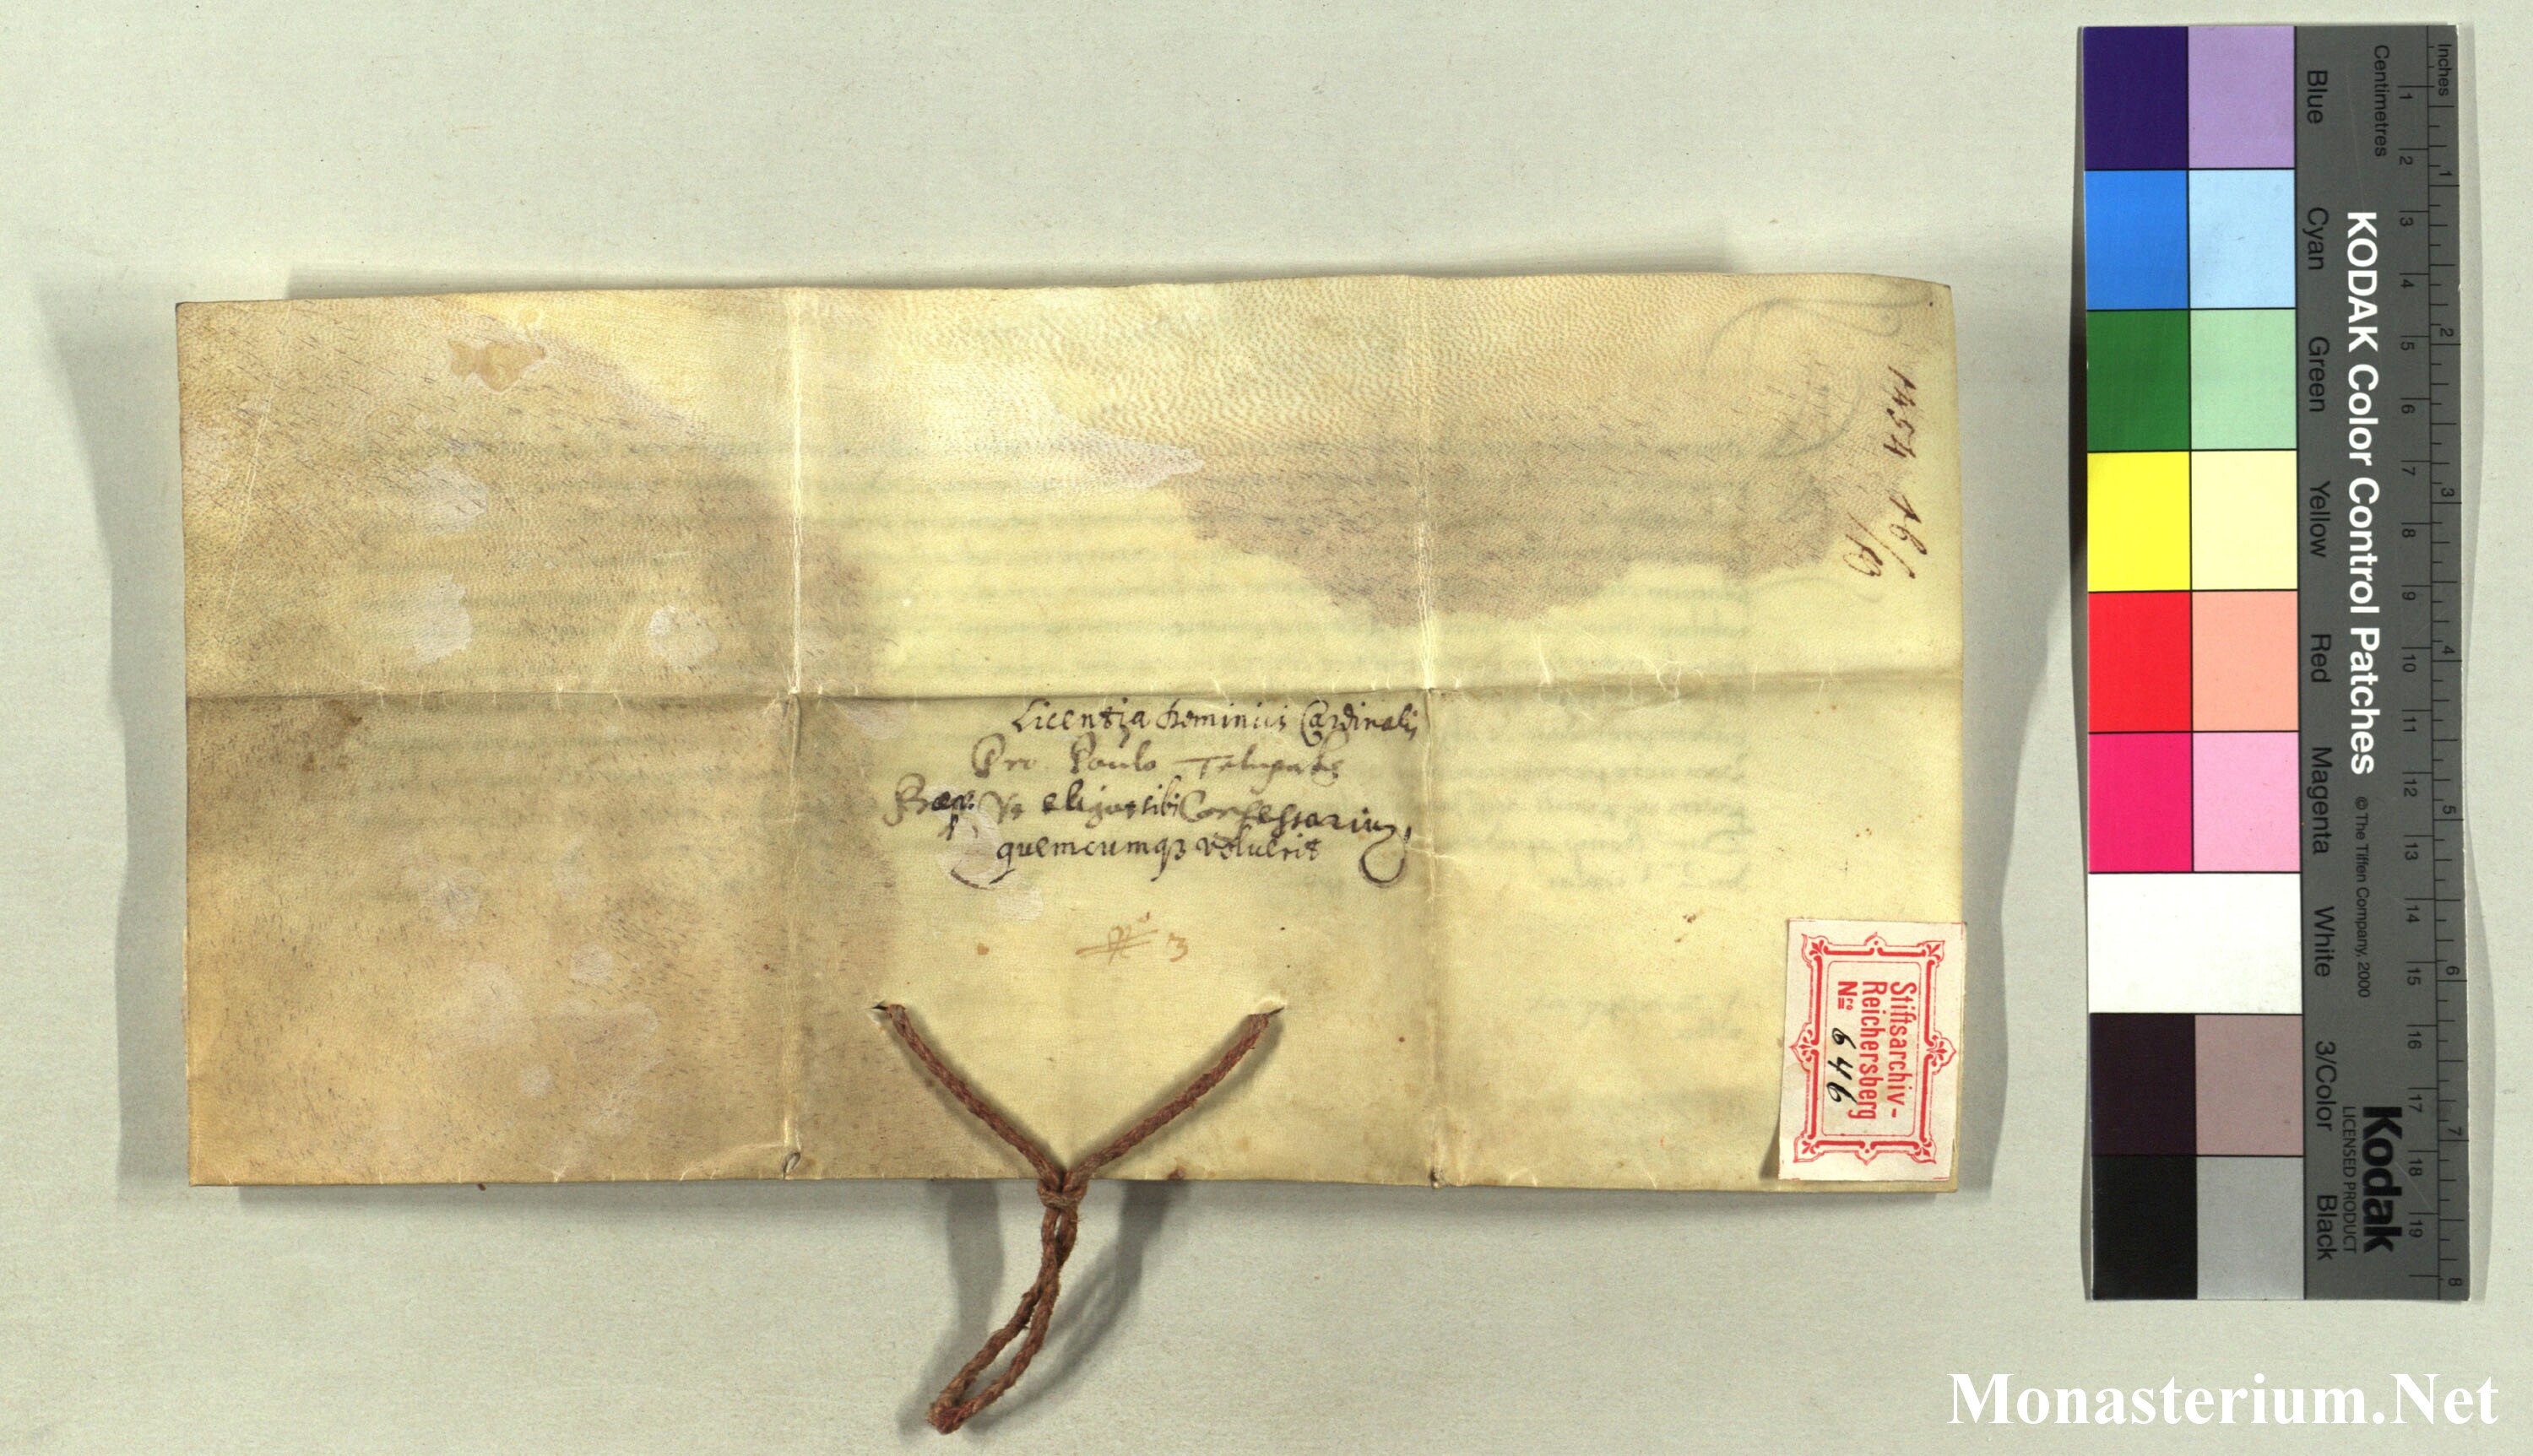 Licentia Cardinalis
Pro Paulo
Ut eligat sibi Confessariu,
quemcumqz voluerit
3
1454 18/10
Stiftsarchiv-
Reichersberg
Nro 646
Inches
Centimetres
1 2 3 4 5 6 7 8 9 10 11 12 13 14 15 16 17 18 19
1 2 3 4 5 6 7 8
KODAK Color Control Patches © The Tiffen Company, 2000
Kodak
LICENSED PRODUCT
Blue Cyan Green Yellow Red Magenta White 3/Color Black
Monasterium.Net